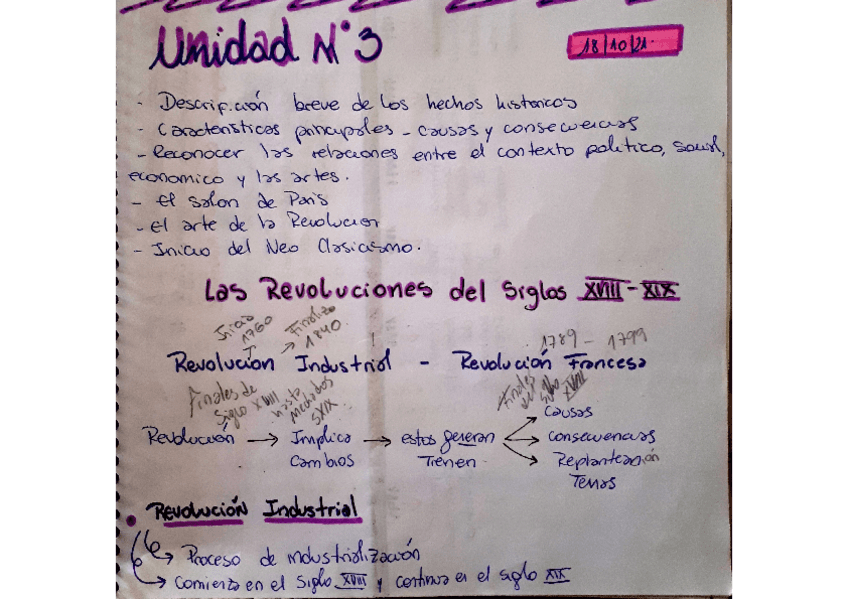 Unidad N°3
18/10/21.
- Descripción breve de los hechos historicos
- Características principales - causas y consecuencias
- Reconocer las relaciones entre el contexto politico, social,
economico y las artes.
- el salon de Paris
- el arte de la Revolucion
- Inicio del Neo Clasicismo.
Las Revoluciones del Siglos XVIII - XIX
Inicio 1760 → Finaliza 1840.
1789 - 1799
Revolución Industrial - Revolución Francesa
Finales de Siglo XVIII hasta mediados SXIX
Finales del siglo XVIII
Revolución → Implica → estos generan → causas
cambios Tienen → consecuencias
→ Replantean
Temas
• Revolución Industrial
→ Proceso de industrialización
→ Comienza en el Siglo XVIII y continua en el siglo XIX